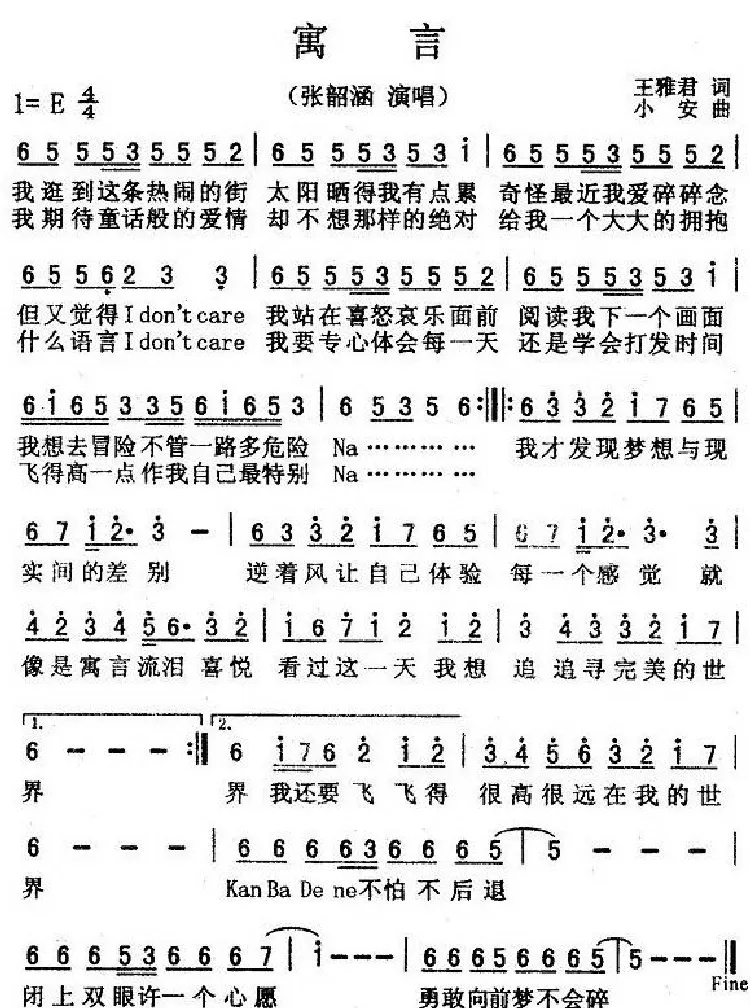 寓言
1=E 4/4
(张韶涵 演唱)
王雅君 词
小安 曲
65 553 5552 | 65 553 53 i | 65 553 5552
我逛到这条热闹的街 太阳晒得我有点累 奇怪最近我爱碎碎念
我期待童话般的爱情 却不想那样的绝对 给我一个大大的拥抱
65562 3 3 | 65 553 5552 | 65 553 53 i |
但又觉得I don't care 我站在喜怒哀乐面前 阅读我下一个画面
什么语言I don't care 我要专心体会每一天 还是学会打发时间
6·i65 3 35 6i653 | 6 5356 :||: 6332 i765 |
我想去冒险不管一路多危险 Na………… 我才发现梦想与现
飞得高一点作我自己最特别 Na…………
67 i2· 3 – | 6332 i765 | 67 i2· 3· 3 |
实间的差别 逆着风让自己体验 每一个感觉就
4234 56· 32 | i67i 2 i2 | 3 4332 i7 |
像是寓言流泪喜悦 看过这一天我想 追追寻完美的世
1. 2.
6 – – – :|| 6 i76 2 i2 | 3456 32 i7 |
界 界我还要飞飞得 很高很远在我的世
6 – – – | 66 663 66 65 | 5 – – – |
界 Kan Ba De ne不怕不后退
66 653 66 67 | i – – – | 666566665 | 5 – – – ||
闭上双眼许一个心愿 勇敢向前梦不会碎
Fine